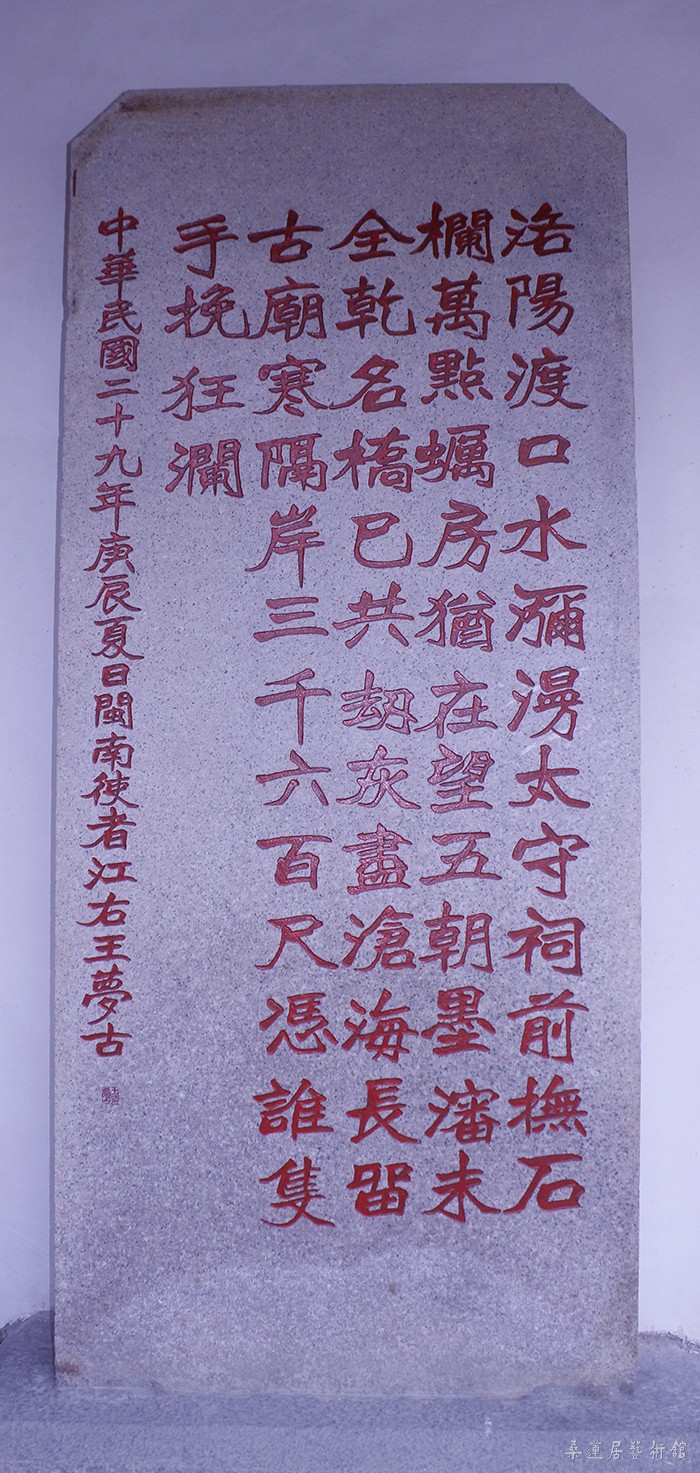 洛陽渡口水瀰漫太守祠前撫石
欄萬點蠣房猶在望五朝墨瀋未
全乾名橋已共劫灰盡滄海長留
古廟寒隔岸三千六百尺憑誰隻
手挽狂瀾
中華民國二十九年庚辰夏日閩南使者江右王夢古
桑蓮居藝術館